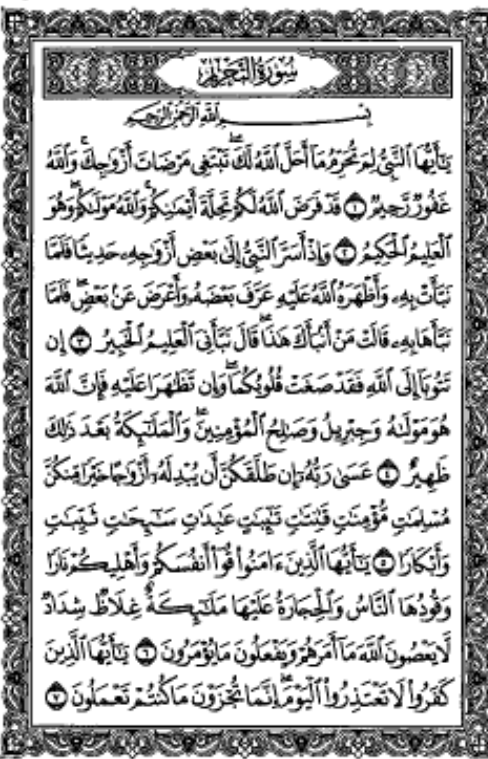 سُورَةُ التَّحْرِيمِ
بِسْمِ اللَّهِ الرَّحْمَٰنِ الرَّحِيمِ
يَٰٓأَيُّهَا ٱلنَّبِيُّ لِمَ تُحَرِّمُ مَآ أَحَلَّ ٱللَّهُ لَكَۖ تَبْتَغِي مَرْضَاتَ أَزْوَٰجِكَۚ وَٱللَّهُ
غَفُورٞ رَّحِيمٞ ١ قَدْ فَرَضَ ٱللَّهُ لَكُمْ تَحِلَّةَ أَيْمَٰنِكُمْۚ وَٱللَّهُ مَوْلَىٰكُمْۖ وَهُوَ
ٱلْعَلِيمُ ٱلْحَكِيمُ ٢ وَإِذْ أَسَرَّ ٱلنَّبِيُّ إِلَىٰ بَعْضِ أَزْوَٰجِهِۦ حَدِيثٗا فَلَمَّا
نَبَّأَتْ بِهِۦ وَأَظْهَرَهُ ٱللَّهُ عَلَيْهِ عَرَّفَ بَعْضَهُۥ وَأَعْرَضَ عَنۢ بَعْضٖۖ فَلَمَّا
نَبَّأَهَا بِهِۦ قَالَتْ مَنْ أَنۢبَأَكَ هَٰذَاۖ قَالَ نَبَّأَنِيَ ٱلْعَلِيمُ ٱلْخَبِيرُ ٣ إِن
تَتُوبَآ إِلَى ٱللَّهِ فَقَدْ صَغَتْ قُلُوبُكُمَاۖ وَإِن تَظَٰهَرَا عَلَيْهِ فَإِنَّ ٱللَّهَ
هُوَ مَوْلَىٰهُ وَجِبْرِيلُ وَصَٰلِحُ ٱلْمُؤْمِنِينَۖ وَٱلْمَلَٰٓئِكَةُ بَعْدَ ذَٰلِكَ
ظَهِيرٌ ٤ عَسَىٰ رَبُّهُۥٓ إِن طَلَّقَكُنَّ أَن يُبْدِلَهُۥٓ أَزْوَٰجًا خَيْرٗا مِّنكُنَّ
مُسْلِمَٰتٖ مُّؤْمِنَٰتٖ قَٰنِتَٰتٖ تَٰٓئِبَٰتٍ عَٰبِدَٰتٖ سَٰٓئِحَٰتٖ ثَيِّبَٰتٖ
وَأَبْكَارٗا ٥ يَٰٓأَيُّهَا ٱلَّذِينَ ءَامَنُوا۟ قُوٓا۟ أَنفُسَكُمْ وَأَهْلِيكُمْ نَارٗا
وَقُودُهَا ٱلنَّاسُ وَٱلْحِجَارَةُ عَلَيْهَا مَلَٰٓئِكَةٌ غِلَاظٞ شِدَادٞ
لَّا يَعْصُونَ ٱللَّهَ مَآ أَمَرَهُمْ وَيَفْعَلُونَ مَا يُؤْمَرُونَ ٦ يَٰٓأَيُّهَا ٱلَّذِينَ
كَفَرُوا۟ لَا تَعْتَذِرُوا۟ ٱلْيَوْمَۖ إِنَّمَا تُجْزَوْنَ مَا كُنتُمْ تَعْمَلُونَ ٧